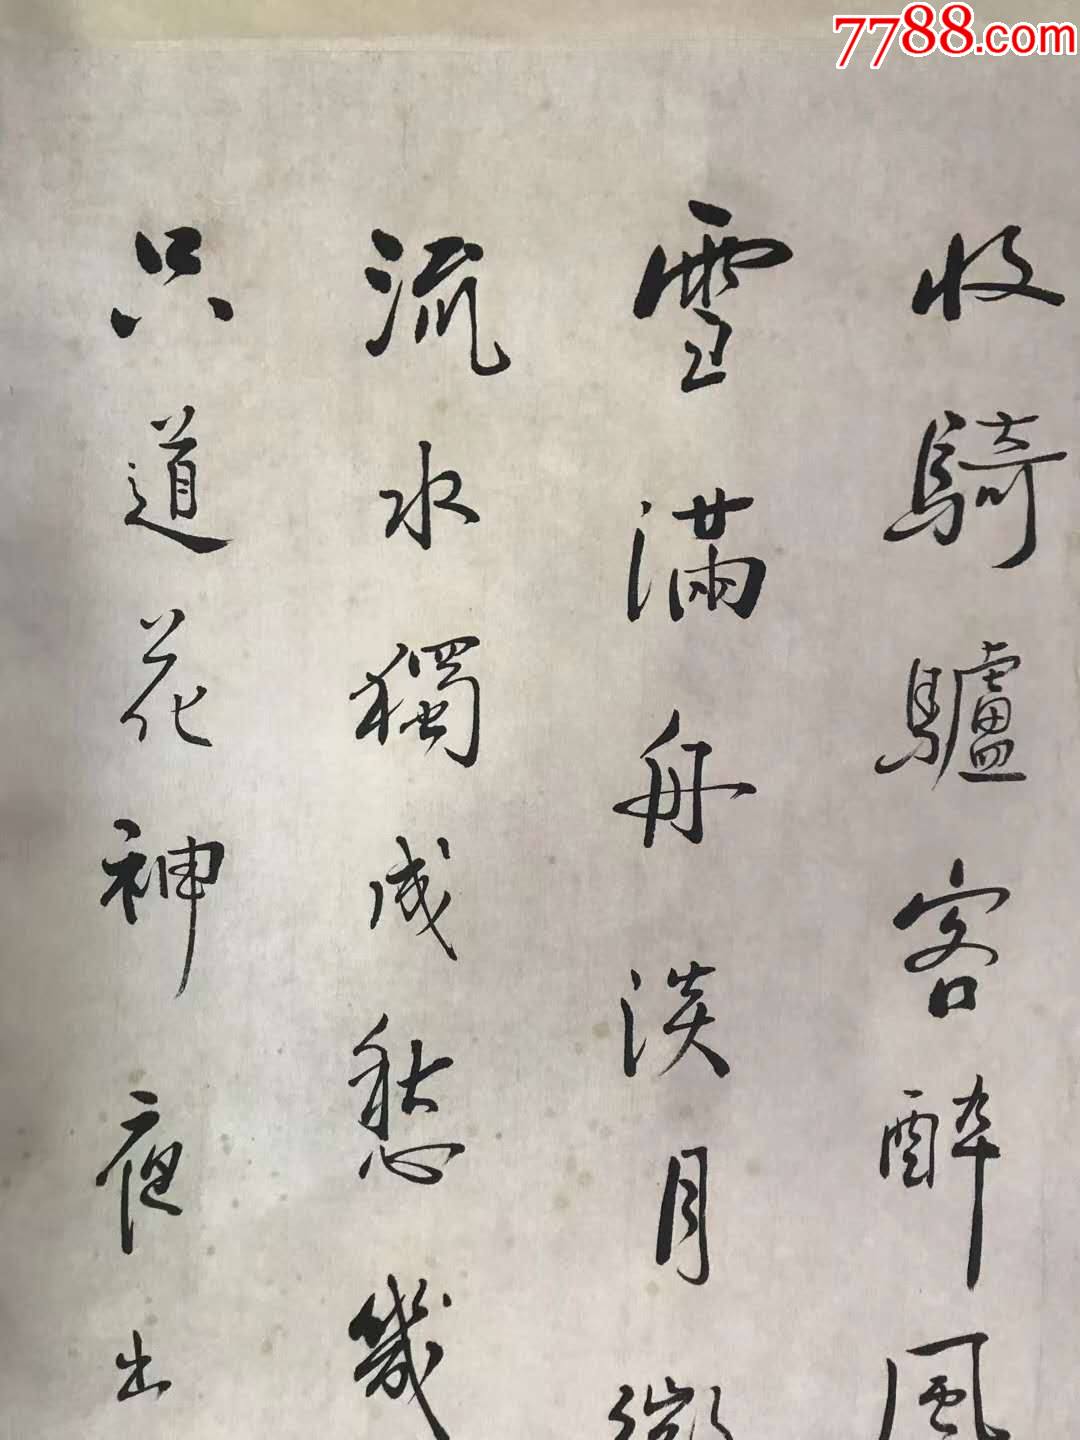 7788.com
收騎驢客醉風
雪滿舟淡月微
流水獨成愁幾
只道花神夜出